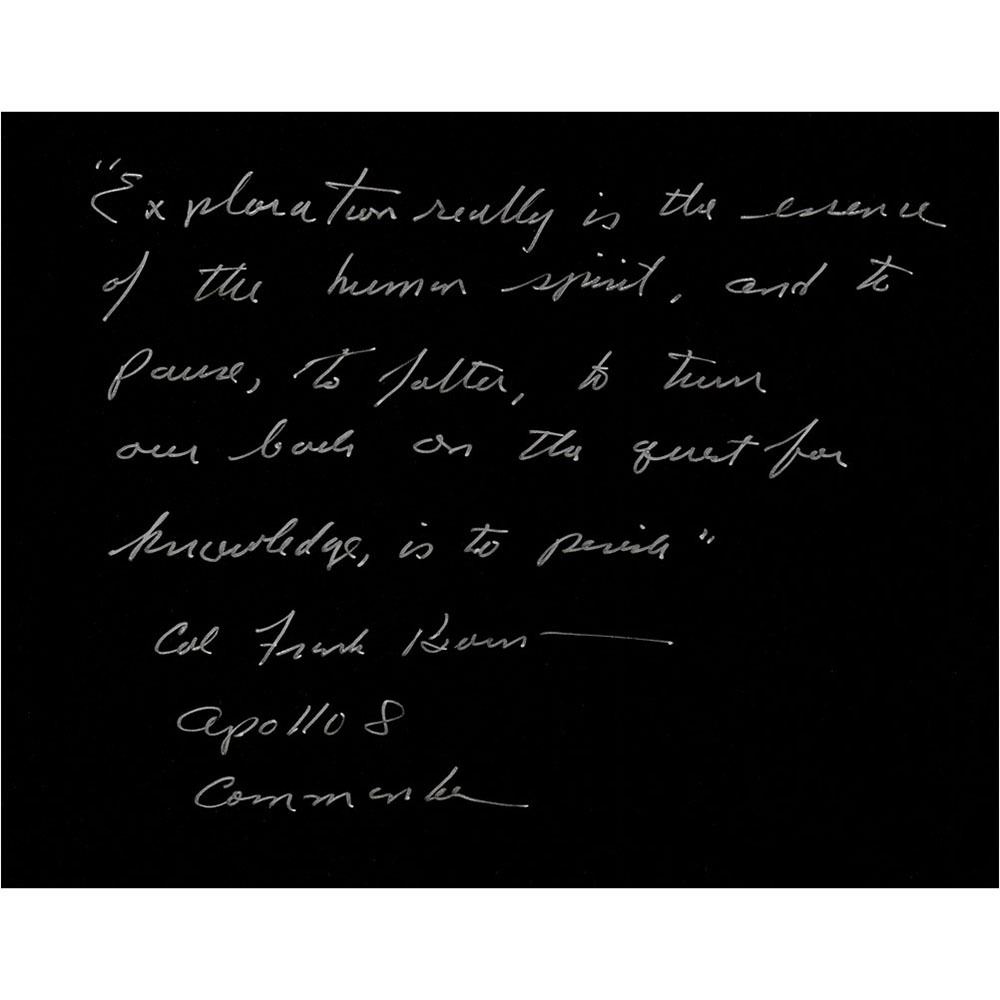 "Exploration really is the essence
of the human spirit, and to
pause, to falter, to turn
our back on the quest for
knowledge, is to perish"
Col Frank Borman
Apollo 8
Commander